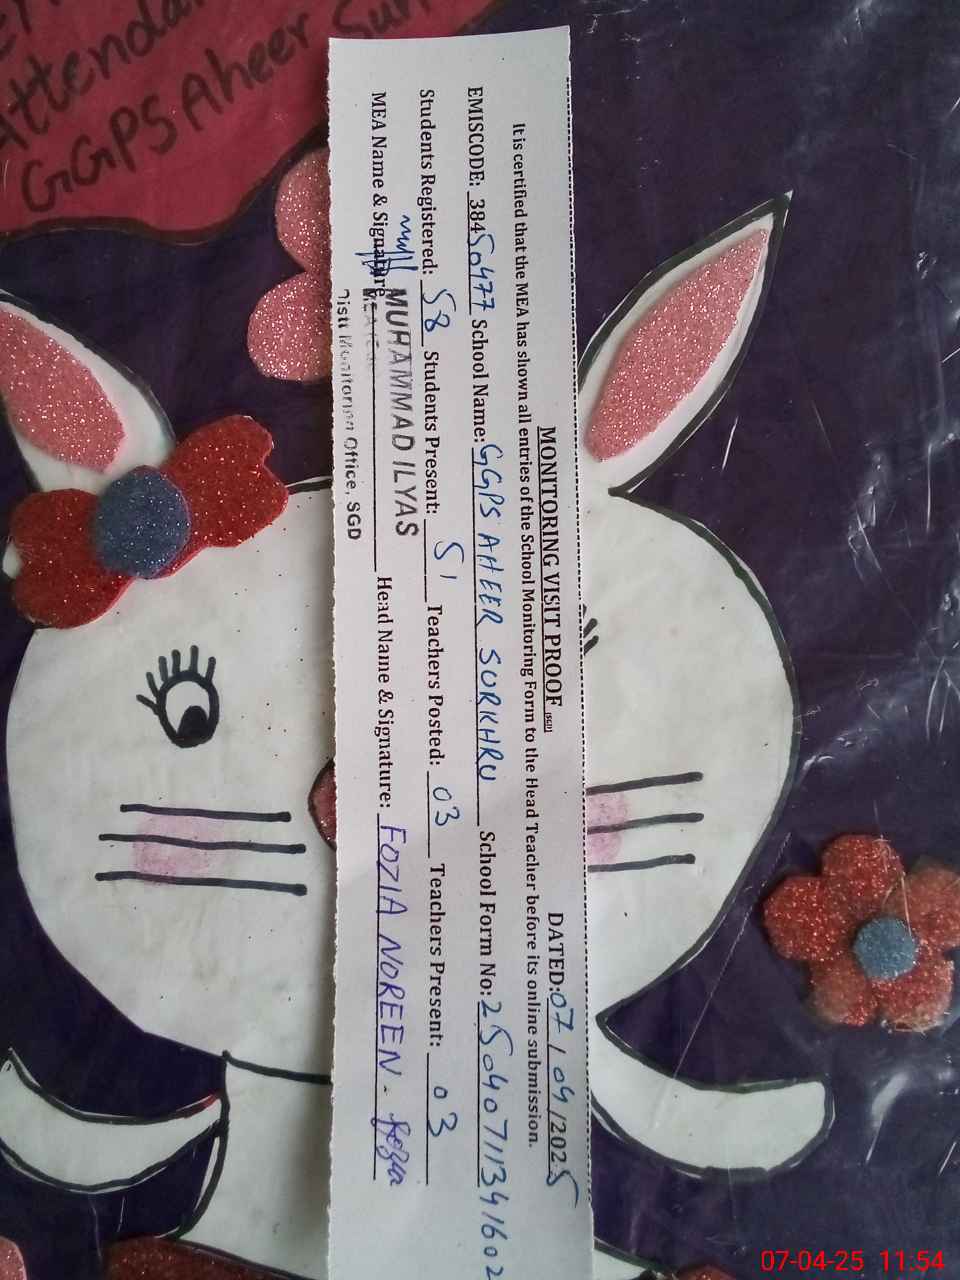 Attenda
GGPS Aheer Sur
MONITORING VISIT PROOF (SGD) DATED: 07/04/2025
It is certified that the MEA has shown all entries of the School Monitoring Form to the Head Teacher before its online submission.
EMISCODE: 38450477 School Name: GGPS AHEER SURKHRU School Form No: 2504071134 1602
Students Registered: 58 Students Present: 51 Teachers Posted: 03 Teachers Present: 03
MEA Name & Signature Head Name & Signature: FOZIA NOREEN.
MUHAMMAD ILYAS
Distt Monitoring Office, SGD
07-04-25 11:54